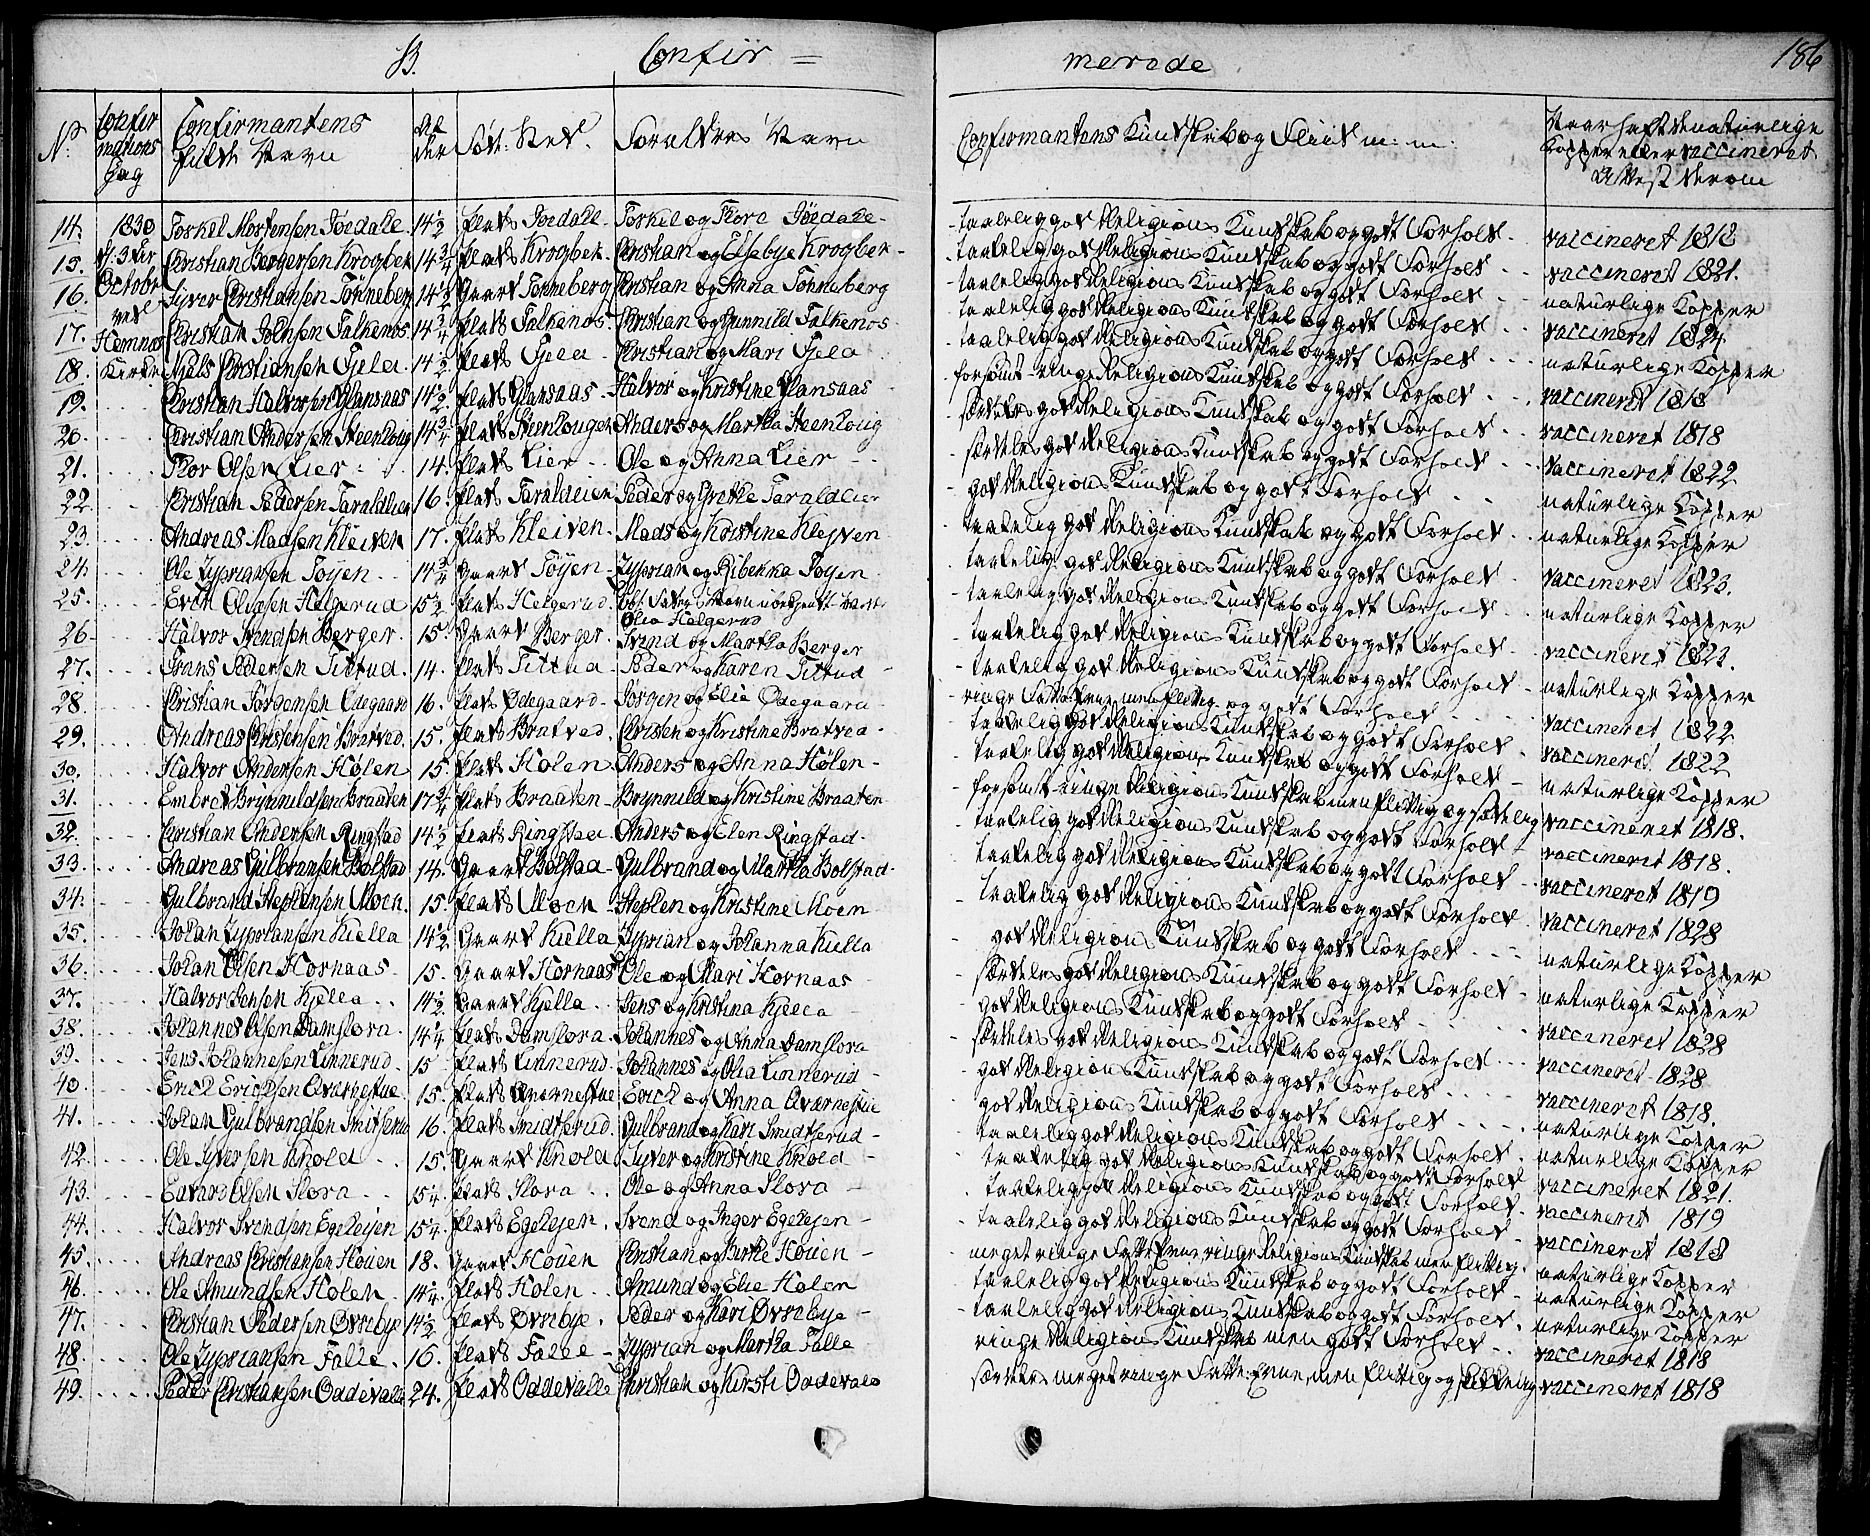 B. Confir = merede 186
No. Confirmations Dag Confirmantens fulde Navn Alder Føde Sted. Forældres Navn Confirmantens Kundskab og Fliid m: m: Naar haft de naturlige Kopper eller vaccineret Attest derom
14. 1830 Torkel Mortensen Jordale 14½ Plads Jordale Torkel og Thore Jordale taalelig god Religions Kundskab og godt Forhold vaccineret 1818
15. d. 3die Christian Bergersen Krogbek 14¾ Plads Krogbek Christian og Elsebye Krogbek taalelig god Religions Kundskab og godt Forhold vaccineret 1821.
16. Octobr Siver Christiansen Tønneberg 14½ Gaard Tønneberg Christian og Anna Tønneberg taalelig god Religions Kundskab og godt Forhold naturlige Kopper
17. ved Hemnæs Christian Johnsen Falkenos 14¾ Plads Falkenos Christian og Gunnild Falkenos taalelig god Religions Kundskab og godt Forhold vaccineret 1824
18. Kirke Niels Christiansen Fjela 14½ Plads Fjela Christian og Mari Fjela taalelig god Religions Kundskab og godt Forhold naturlige Kopper
19. Christian Halvorsen Glansaas 14½ Plads Glansaas Halvor og Kristine Glansaas forsømt ringe Religions Kundskab og godt Forhold vaccineret 1818
20. Christian Andersen Steenloug 14¾ Plads Steenlougen Anders og Martha Steenloug særdeles god Religions Kundskab og godt Forhold vaccineret 1818
21. Thor Olsen Lier 14. Plads Lier Ole og Anna Lier særdeles god Religions Kundskab og godt Forhold vaccineret 1822
22 Christian Pedersen Taraldlien 16. Plads Taraldlien Peder og Grethe Taraldlien god Religions Kundskab og godt Forhold naturlige Kopper
23. Andreas Madsen Kleiven 17. Plads Kleiven Mads og Kristine Klejven taalelig god Religions Kundskab og godt Forhold naturlige Kopper
24. Ole Zypriansen Tøyen 14¾ Gaard Tøyen Zyprian og Ribekka Tøyen taalelig god Religions Kundskab og godt Forhold vaccineret 1823.
25. Even Olsen Helgerud 15½ Plads Helgerud Faders Navn ubekjendt
Olia Helgerud taalelig god Religions Kundskab og godt Forhold naturlige Kopper
26. Halvor Svendsen Berger 15. Gaard Berger Svend og Martha Berger taalelig god Religions Kundskab og godt Forhold vaccineret 1823.
27. Frans Pedersen Tittud 14. Plads Tittud Peder og Karen Tittud taalelig god Religions Kundskab og godt Forhold naturlige Kopper
28. Christian Jørgensen Ødegaard 16. Plads Ødegaard Jørgen og Elie Ødegaard ringe Fatte Evne, men flittig og godt Forhold vaccineret 1822
29. Andreas Christensen Bratved. 15. Plads Bratved Christen og Kristine Bratved taalelig god Religions Kundskab og godt Forhold vaccineret 1822
30. Halvor Andersen Hølen 15. Plads Holen Anders og Anna Hølen taalelig god Religions Kundskab og godt Forhold naturlige Kopper
31. Embret Brynnildsen Braaten 17¾ Plads Braaten Brynnild og Kristine Braaten forsømt ringe Religions Kundskab men flittig og sædelig vaccineret 1818.
32. Christian Andersen Ringstad 14½ Plads Ringstad Anders og Elen Ringstad taalelig god Religions Kundskab og godt Forhold vaccineret 1818.
33. Andreas Gulbransen Bolstad 14. Gaard Bolstad Gulbrand og Martha Bolstad taalelig god Religions Kundskab og godt Forhold vaccineret 1819
34. Gulbrand Stephensen Moen 15. Plads Moen Stephen og Kristine Moen taalelig god Religions Kundskab og godt Forhold vaccineret 1828
35. Johan Zypriansen Kiella 14½ Gaard Kiella Zyprian og Johanna Kiella god Religions Kundskab og godt Forhold naturlige Kopper
36. Johan Olsen Hornaas 15. Gaard Hornaas Ole og Mari Hornaas særdeles god Religions Kundskab og godt Forhold naturlige Kopper
37. Halvor Jensen Kjella 14½ Gaard Kjella Jens og Kristina Kjella god Religions Kundskab og godt Forhold vaccineret 1828
38. Johannes Olsen Damslora 14¼ Plads Damslora Johannes og Anna Damslora særdeles god Religions Kundskab og godt Forhold vaccineret 1828
39. Jens Johannesen Linnerud 15 Plads Linnerud Johannes og Olia Linnerud god Religions Kundskab og godt Forhold vaccineret 1818.
40. Erich Erichsen Qværnestue 15. Plads Qværnestue Erich og Anna Qværnestue god Religions Kundskab og godt Forhold naturlige Kopper
41. Johan Gulbrandsen Smitserud 16. Plads Smidtserud Gulbrand og Kari Smidtserud taalelig god Religions Kundskab og godt Forhold naturlige Kopper
42. Ole Syversen Knold 15. Gaard Knold Syver og Kristine Knold taalelig god Religions Kundskab og godt Forhold vaccineret 1821.
43. Edvard Olsen Slora 15¼ Plads Slora Ole og Anna Slora taalelig god Religions Kundskab og godt Forhold vaccineret 1819
44. Halvor Svendsen Egelejen 15¼ Plads Egelejen Svend og Inger Egelejen taalelig god Religions Kundskab og godt Forhold vaccineret 1818
45. Andreas Christiansen Houen 18. Gaard Houen Christian og Birthe Houen meget ringe Fatte Evne, ringe Religions Kundskab men flittig. naturlige Kopper
46. Ole Amundsen Holen 14¼ Plads Holen Amund og Elie Holen taalelig god Religions Kundskab og godt Forhold naturlige Kopper
47. Christian Pedersen Øvrebye 14½ Plads Øvrebye Peder og Kari Øvrebye taalelig god Religions Kundskab og godt Forhold naturlige Kopper
48. Ole Zypriansen Falle 16. Plads Falle Zyprian og Martha Falle ringe Religions Kundskab men godt Forhold vaccineret 1818
49. Peder Christiansen Oddevald 24. Plads Oddevalle Christian og Kirsti Oddevald særdeles meget ringe Fatte Evne, men flittig og sædelig vaccineret 1818